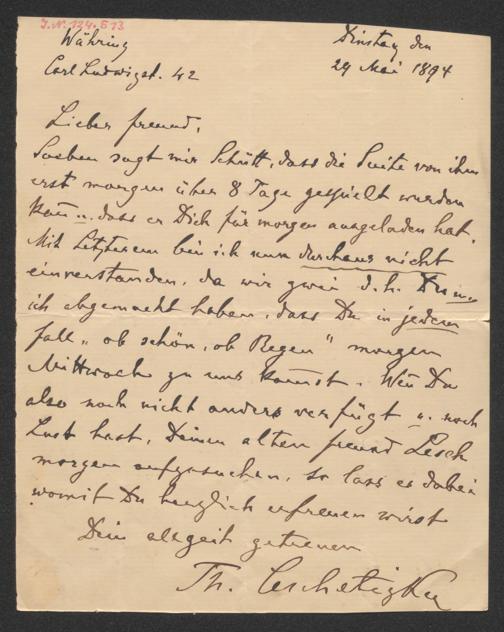 J.N. 124.613
Währing
Carl Ludwigst. 42
Dinstag den
29 Mai 1894
Lieber Freund,
Soeben sagt mir Schütt, dass die Suite von ihm
erst morgen über 8 Tage gespielt werden
kan u. dass er Dich für morgen ausgeladen hat.
Mit Letzterem bin ich nun durchaus nicht
einverstanden, da wir zwei d.h. Du u.
ich abgemacht haben, dass Du in jedem
Fall „ob schön, ob Regen" morgen
Mittwoch zu uns komst. Wen Du
also noch nicht anders verfügt u. noch
Lust hast, Deinen alten Freund Lesch
morgen aufzusuchen, so lass es dabei
womit Du herzlich erfreuen wirst
Dein allzeit getreuen
Th. Leschetizky